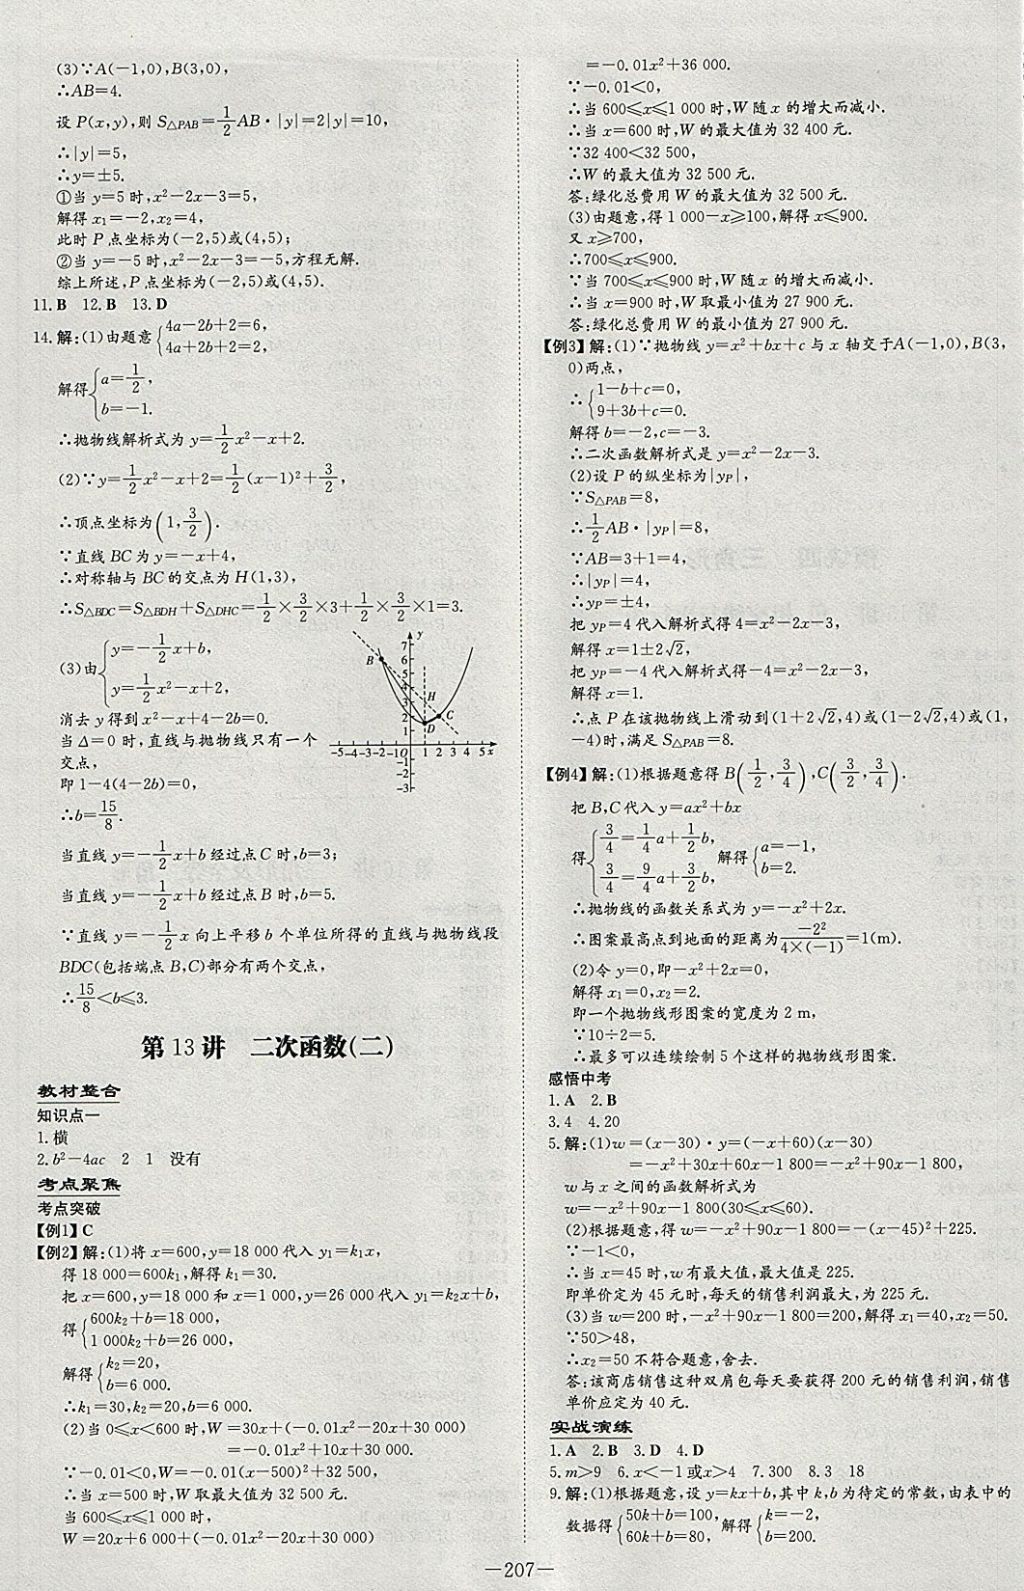 (3)∵A(−1,0),B(3,0),
∴AB=4.
设 P(x,y),则 S△PAB=1/2AB·|y|=2|y|=10,
∴|y|=5,
∴y=±5.
①当 y=5 时,x²−2x−3=5,
解得 x₁=−2,x₂=4,
此时 P 点坐标为(−2,5)或(4,5);
②当 y=−5 时,x²−2x−3=−5,方程无解.
综上所述,P 点坐标为(−2,5)或(4,5).
11.B 12.B 13.D
14.解:(1)由题意{4a−2b+2=6,
4a+2b+2=2,
解得{a=1/2,
b=−1.
∴抛物线解析式为 y=1/2x²−x+2.
(2)∵y=1/2x²−x+2=1/2(x−1)²+3/2,
∴顶点坐标为(1,3/2).
∵直线 BC 为 y=−x+4,
∴对称轴与 BC 的交点为 H(1,3),
∴S△BDC=S△BDH+S△DHC=1/2×3/2×3+1/2×3/2×1=3.
(3)由{y=−1/2x+b,
y=1/2x²−x+2,
消去 y 得到 x²−x+4−2b=0.
当 Δ=0 时,直线与抛物线只有一个
交点,
即 1−4(4−2b)=0,
∴b=15/8.
y
7
6
5
4
3
2
1
B
H
C
D
−5−4−3−2−1O 1 2 3 4 5 x
−1
−2
−3
当直线 y=−1/2x+b 经过点 C 时,b=3;
当直线 y=−1/2x+b 经过点 B 时,b=5.
∵直线 y=−1/2x 向上平移 b 个单位所得的直线与抛物线段
BDC(包括端点 B,C)部分有两个交点,
∴15/8<b≤3.
第 13 讲 二次函数(二)
教材整合
知识点一
1.横
2.b²−4ac 2 1 没有
考点聚焦
考点突破
【例1】C
【例2】解:(1)将 x=600,y=18 000 代入 y₁=k₁x,
得 18 000=600k₁,解得 k₁=30.
把 x=600,y=18 000 和 x=1 000,y=26 000 代入 y₁=k₂x+b,
得{600k₂+b=18 000,
1 000k₂+b=26 000,
解得{k₂=20,
b=6 000.
∴k₁=30,k₂=20,b=6 000.
(2)当 0≤x<600 时,W=30x+(−0.01x²−20x+30 000)
=−0.01x²+10x+30 000.
∵−0.01<0,W=−0.01(x−500)²+32 500,
∴当 x=500 时,W 取最大值为 32 500 元.
当 600≤x≤1 000 时,
W=20x+6 000+(−0.01x²−20x+30 000)
=−0.01x²+36 000.
∵−0.01<0,
∴当 600≤x≤1 000 时,W 随 x 的增大而减小.
∴当 x=600 时,W 的最大值为 32 400 元.
∵32 400<32 500,
∴W 的最大值为 32 500 元.
答:绿化总费用 W 的最大值为 32 500 元.
(3)由题意,得 1 000−x≥100,解得 x≤900.
又 x≥700,
∴700≤x≤900.
∵当 700≤x≤900 时,W 随 x 的增大而减小.
∴当 x=900 时,W 取最小值为 27 900 元.
答:绿化总费用 W 的最小值为 27 900 元.
【例3】解:(1)∵抛物线 y=x²+bx+c 与 x 轴交于A(−1,0),B(3,
0)两点,
∴{1−b+c=0,
9+3b+c=0.
解得 b=−2,c=−3.
∴二次函数解析式是 y=x²−2x−3.
(2)设 P 的纵坐标为|yP|,
∵S△PAB=8,
∴1/2AB·|yP|=8,
∵AB=3+1=4,
∴|yP|=4,
∴yP=±4,
把 yP=4 代入解析式得 4=x²−2x−3,
解得 x=1±2√2,
把 yP=−4 代入解析式得−4=x²−2x−3,
解得 x=1.
∴点 P 在该抛物线上滑动到(1+2√2,4)或(1−2√2,4)或(1,
−4)时,满足 S△PAB=8.
【例4】解:(1)根据题意得 B(1/2,3/4),C(3/2,3/4).
把 B,C 代入 y=ax²+bx
得{3/4=1/4a+1/2b,
3/4=9/4a+3/2b,
解得{a=−1,
b=2.
∴抛物线的函数关系式为 y=−x²+2x.
∴图案最高点到地面的距离为−2²/4×(−1)=1(m).
(2)令 y=0,即−x²+2x=0,
解得 x₁=0,x₂=2.
即一个抛物线形图案的宽度为 2 m,
∵10÷2=5.
∴最多可以连续绘制 5 个这样的抛物线形图案.
感悟中考
1.A 2.B
3.4 4.20
5.解:(1)w=(x−30)·y=(−x+60)(x−30)
=−x²+30x+60x−1 800=−x²+90x−1 800,
w 与 x 之间的函数解析式为
w=−x²+90x−1 800(30≤x≤60).
(2)根据题意,得 w=−x²+90x−1 800=−(x−45)²+225.
∵−1<0,
∴当 x=45 时,w 有最大值,最大值是 225.
即单价定为 45 元时,每天的销售利润最大,为 225 元.
(3)当 w=200 时,−x²+90x−1 800=200,解得 x₁=40,x₂=50.
∵50>48,
∴x₂=50 不符合题意,舍去.
答:该商店销售这种双肩包每天要获得 200 元的销售利润,销售
单价应定为 40 元.
实战演练
1.A 2.B 3.D 4.D
5.m>9 6.x<−1 或x>4 7.300 8.3 18
9.解:(1)根据题意,设 y=kx+b,其中 k,b 为待定的常数,由表中的
数据得{50k+b=100,
60k+b=80,
解得{k=−2,
b=200.
—207—